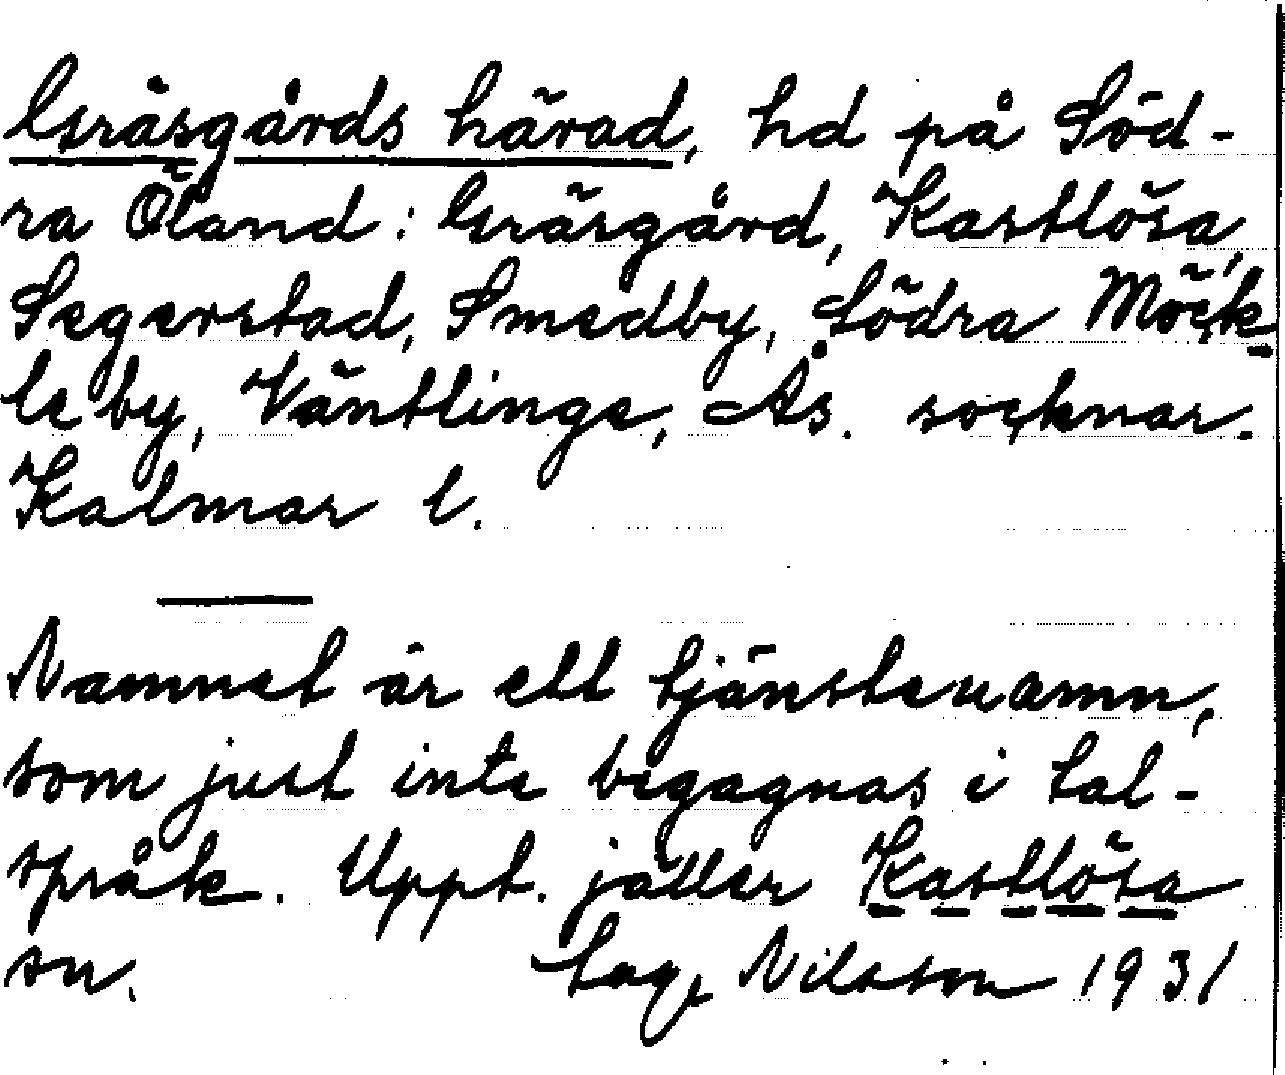 Gräsgårds härad, hd på Söd-
ra Öland: Gräsgård, Kastlösa,
Segerstad, Smedby, Södra Möck
leby, Väntlinge, Ås. socknar.
Kalmar l.
Namnet är ett tjänstenamn,
som just inte begagnas i tal-
språk. Uppt. jäller Kastlösa
sn. Lage Nilsson 1931